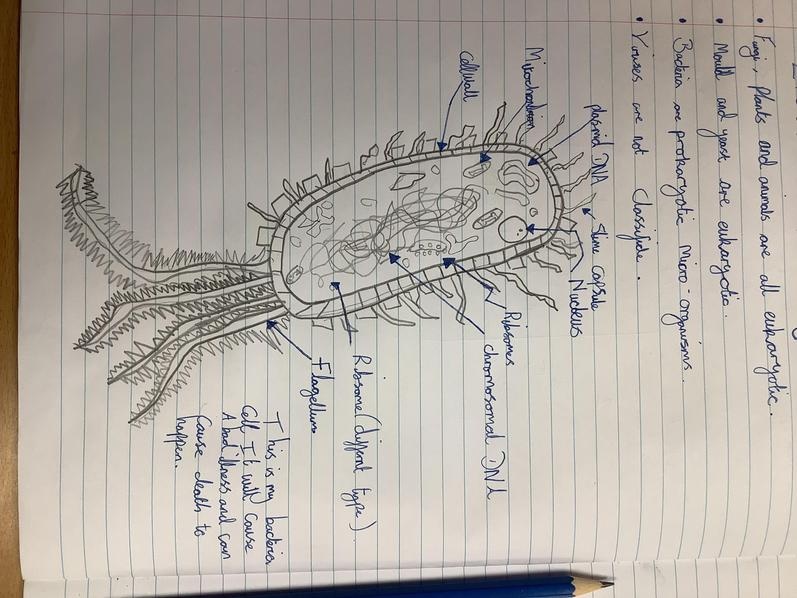 • Fungi, Plants and animals are all eukaryotic.
• Mould and yeast are eukaryotic.
• Bacteria are prokaryotic Micro-organisms.
• Viruses are not Classifide.
Slime capsule
Nucleus
plasmid DNA
Mitochondrion
Cell wall
Ribsomes
chromosomal DNA
Ribsome (diffrent type).
Flagellum
This is my bacteria
Cell It will Cause
A bad illness and can
Cause death to
happen.